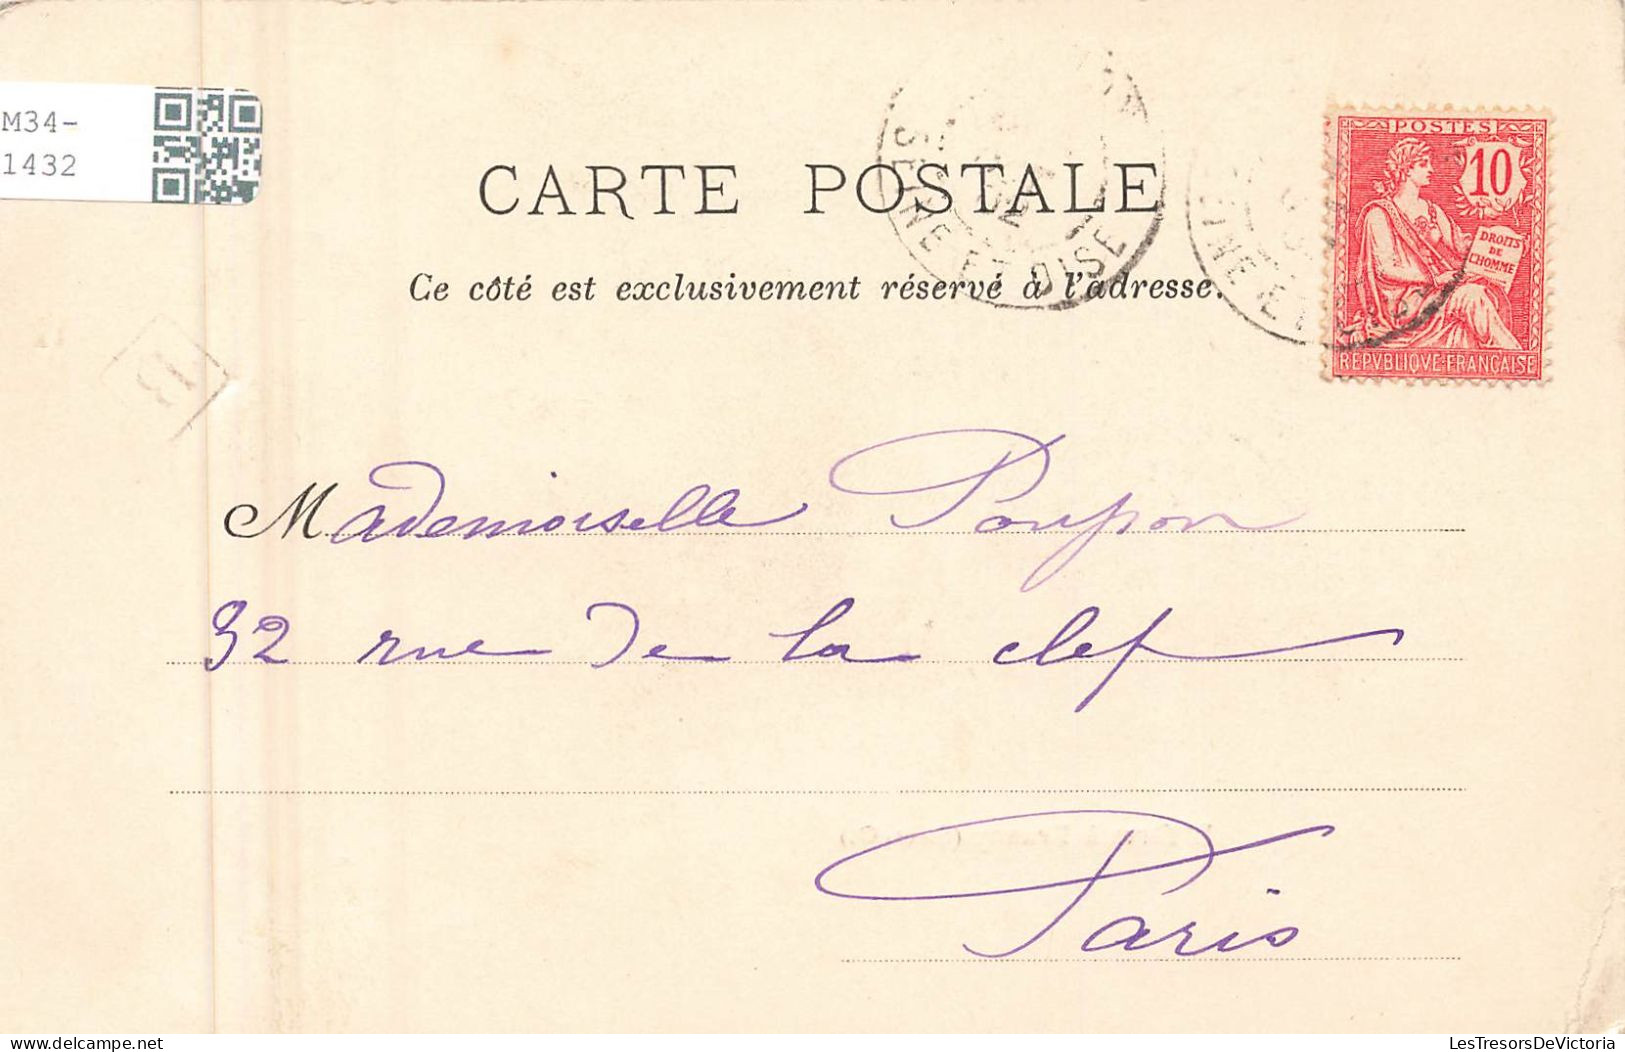 M34-
1432
CARTE POSTALE
Ce côté est exclusivement réservé à l'adresse.
SEINE ET OISE
02
POSTES
10
DROITS
DE
L'HOMME
REPVBLIQVE FRANCAISE
B
Mademoiselle Poupon
32 rue de la clef
Paris
LesTresorsDeVictoria